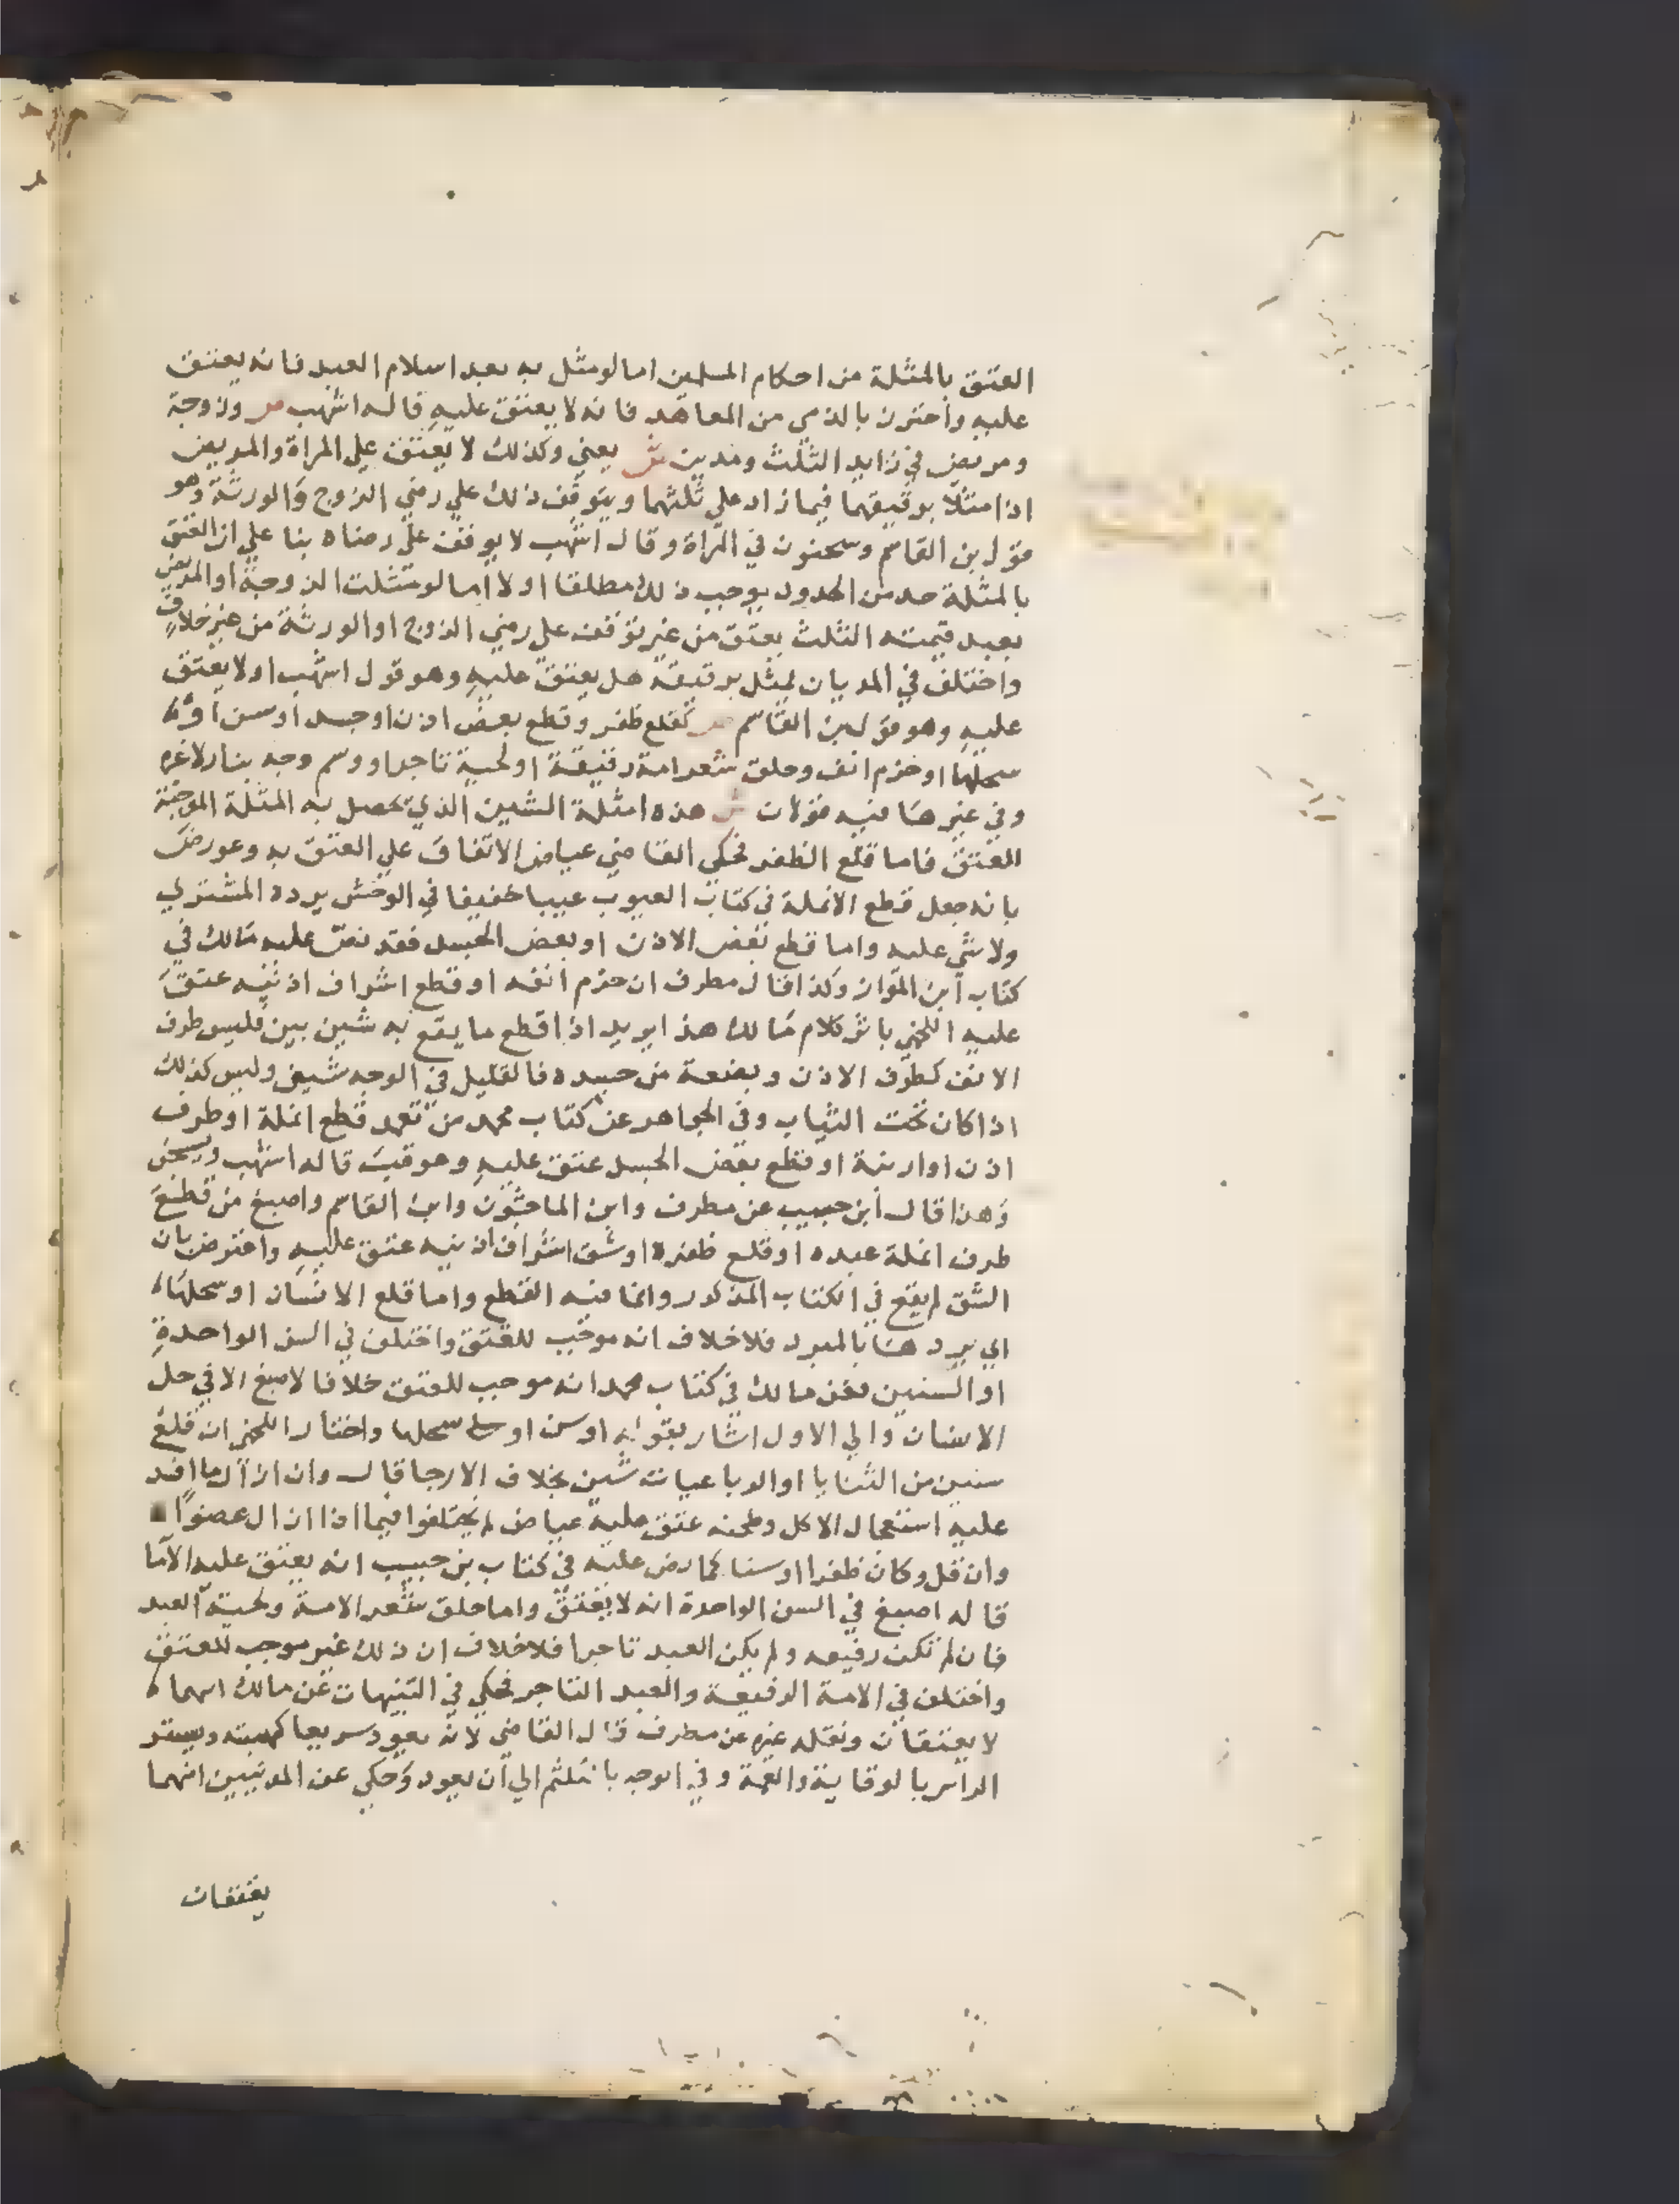 العتق بالمثلة من احكام المسلمين اما لو مثل به بعد اسلام العبد فانه يعتق
عليه واحترز بالذمي من المعاهد فانه لا يعتق عليه قاله اشهب ص وزوجة
ومريض في زايد الثلث ومدين ش يعني وكذلك لا يعتق علي المراة والمريض
اذا مثلا برقيقهما فيما زاد علي ثلثهما ويتوقف ذلك علي رضي الزوج والورثة وهو
قول بن القاسم وسحنون في المراة وقال اشهب لا يوقف علي رضاه بنا علي ان العتق
بالمثلة حد من الحدود يوجب ذلك مطلقا اولا اما لو مثلت الزوجة او المريض
بعبد قيمته الثلث يعتق من غير توقف علي رضي الزوج او الورثة من غير خلاف
واختلف في المديان يمثل برقيقه هل يعتق عليه وهو قول اشهب اولا يعتق
عليه وهو قول بن القاسم ص كقلع ظفر وقطع بعض اذن او جسد او سن او
سحلها او خزم انف وحلق شعر امة رفيعة او لحية تاجر او وسم وجه بنار لا غيره
وفي غيرها فيه قولان ش هذه امثلة الشين الذي يحصل به المثلة الموجبة
للعتق فاما قلع الظفر فحكي القاضي عياض الاتفاق علي العتق به وعورض
بانه جعل قطع الانملة في كتاب العيوب عيبا خفيفا في الوخش يرده المشتري
ولا شي عليه واما قطع بعض الاذن او بعض الجسد فقد نص عليه مالك في
كتاب ابن المواز وكذا قال مطرف ان خزم انفه او قطع اشراف اذنيه عتق
عليه اللخمي باثر كلام مالك هذا يريد اذا قطع ما يقع به شين بين فليس طرف
الانف كطرف الاذن وبضعة من جسده فالقليل في الوجه شين وليس كذلك
اذا كان تحت الثياب وفي الجواهر عن كتاب محمد من تعمد قطع انملة او طرف
اذن او ارنبة او قطع بعض الجسد عتق عليه وعوقب قاله اشهب ويسجن
وهذا قال ابن حبيب عن مطرف وابن الماجشون وابن القاسم واصبغ من قطع
طرف انملة عبده او قلع ظفره او شق اشراف اذنيه عتق عليه واعترض بان
الشق لم يقع في الكتاب المذكور وانما فيه القطع واما قلع الاسنان او سحلها
اي بردها بالمبرد فلا خلاف انه موجب للعتق واختلف في السن الواحدة
او السنين فعن مالك في كتاب محمد انه موجب للعتق خلافا لاصبغ الا في جل
الاسنان والي الاول اشار بقوله او سن او سحلها واختار اللخمي ان قلع
سنين من الثنايا او الرباعيات شين بخلاف الارجا قال وان ازال ما افسد
عليه استعمال الاكل وطحنه عتق عليه عياض لم يختلفوا فيما اذا ازال عضوا
وان قل وكان ظفرا او سنا كما نص عليه في كتاب بن حبيب انه يعتق عليه الا ما
قاله اصبغ في السن الواحدة انه لا يعتق واما حلق شعر الامة ولحية العبد
فان لم تكن رفيعه ولم يكن العبد تاجرا فلا خلاف ان ذلك غير موجب للعتق
واختلف في الامة الرفيعة والعبد التاجر فحكي في التنبيهات عن مالك انهما
لا يعتقان ونقله غيره عن مطرف قال القاضي لانه يعود سريعا كهيئته ويستر
الراس بالوقاية والعمة وفي الوجه بالتلثم الي ان يعود وحكي عن المدنيين انهما
يعتقان